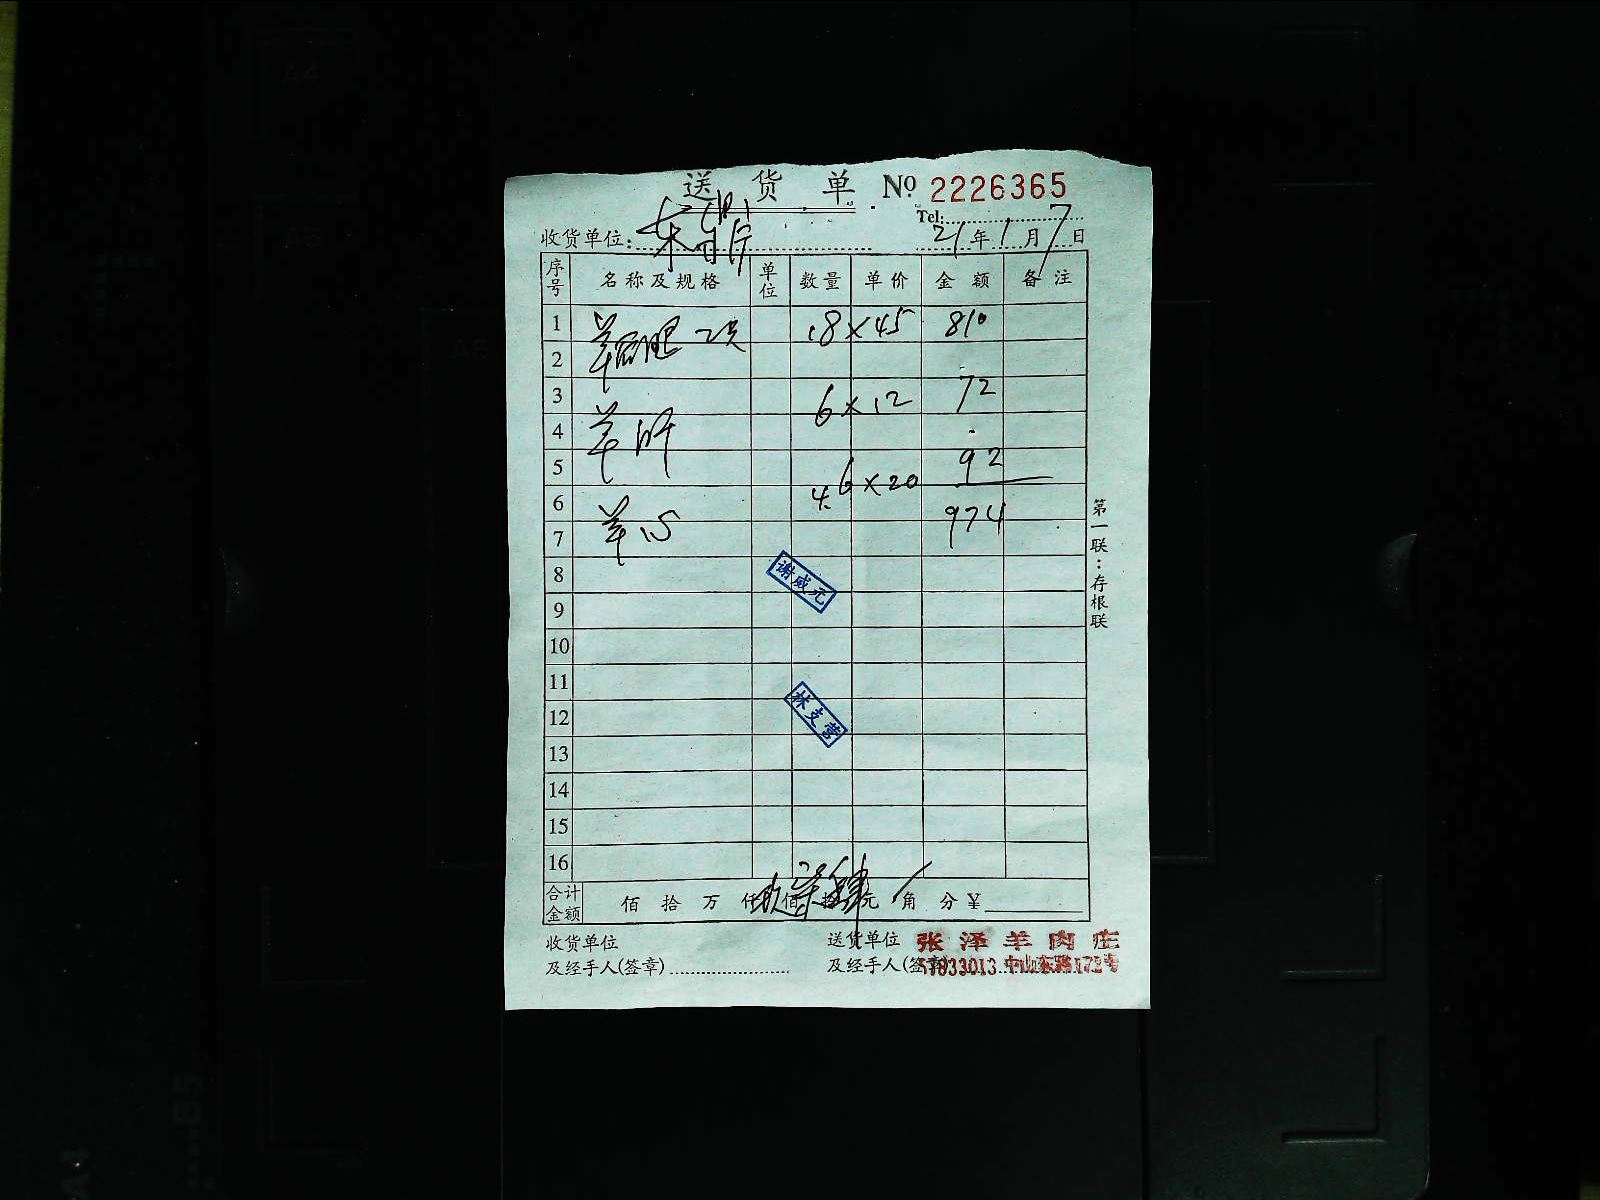 送 货 单 № 2226365
Tel:
收货单位: 21年1月7日
序号 名称及规格 单位 数量 单价 金额 备注
1 羊后腿 2只 18×45 810
2
3 6×12 72
4 羊肝
5 92
6 4.6×20
7 羊心 974
8 谢威元
9
10
11
12 林支营
13
14
15
16
合计金额 佰 拾 万 仟 玖佰 柒拾 肆元 角 分 ¥
第一联:存根联
收货单位 送货单位 张泽羊肉庄
及经手人(签章) 及经手人(签章) 57833013 中山东路172号